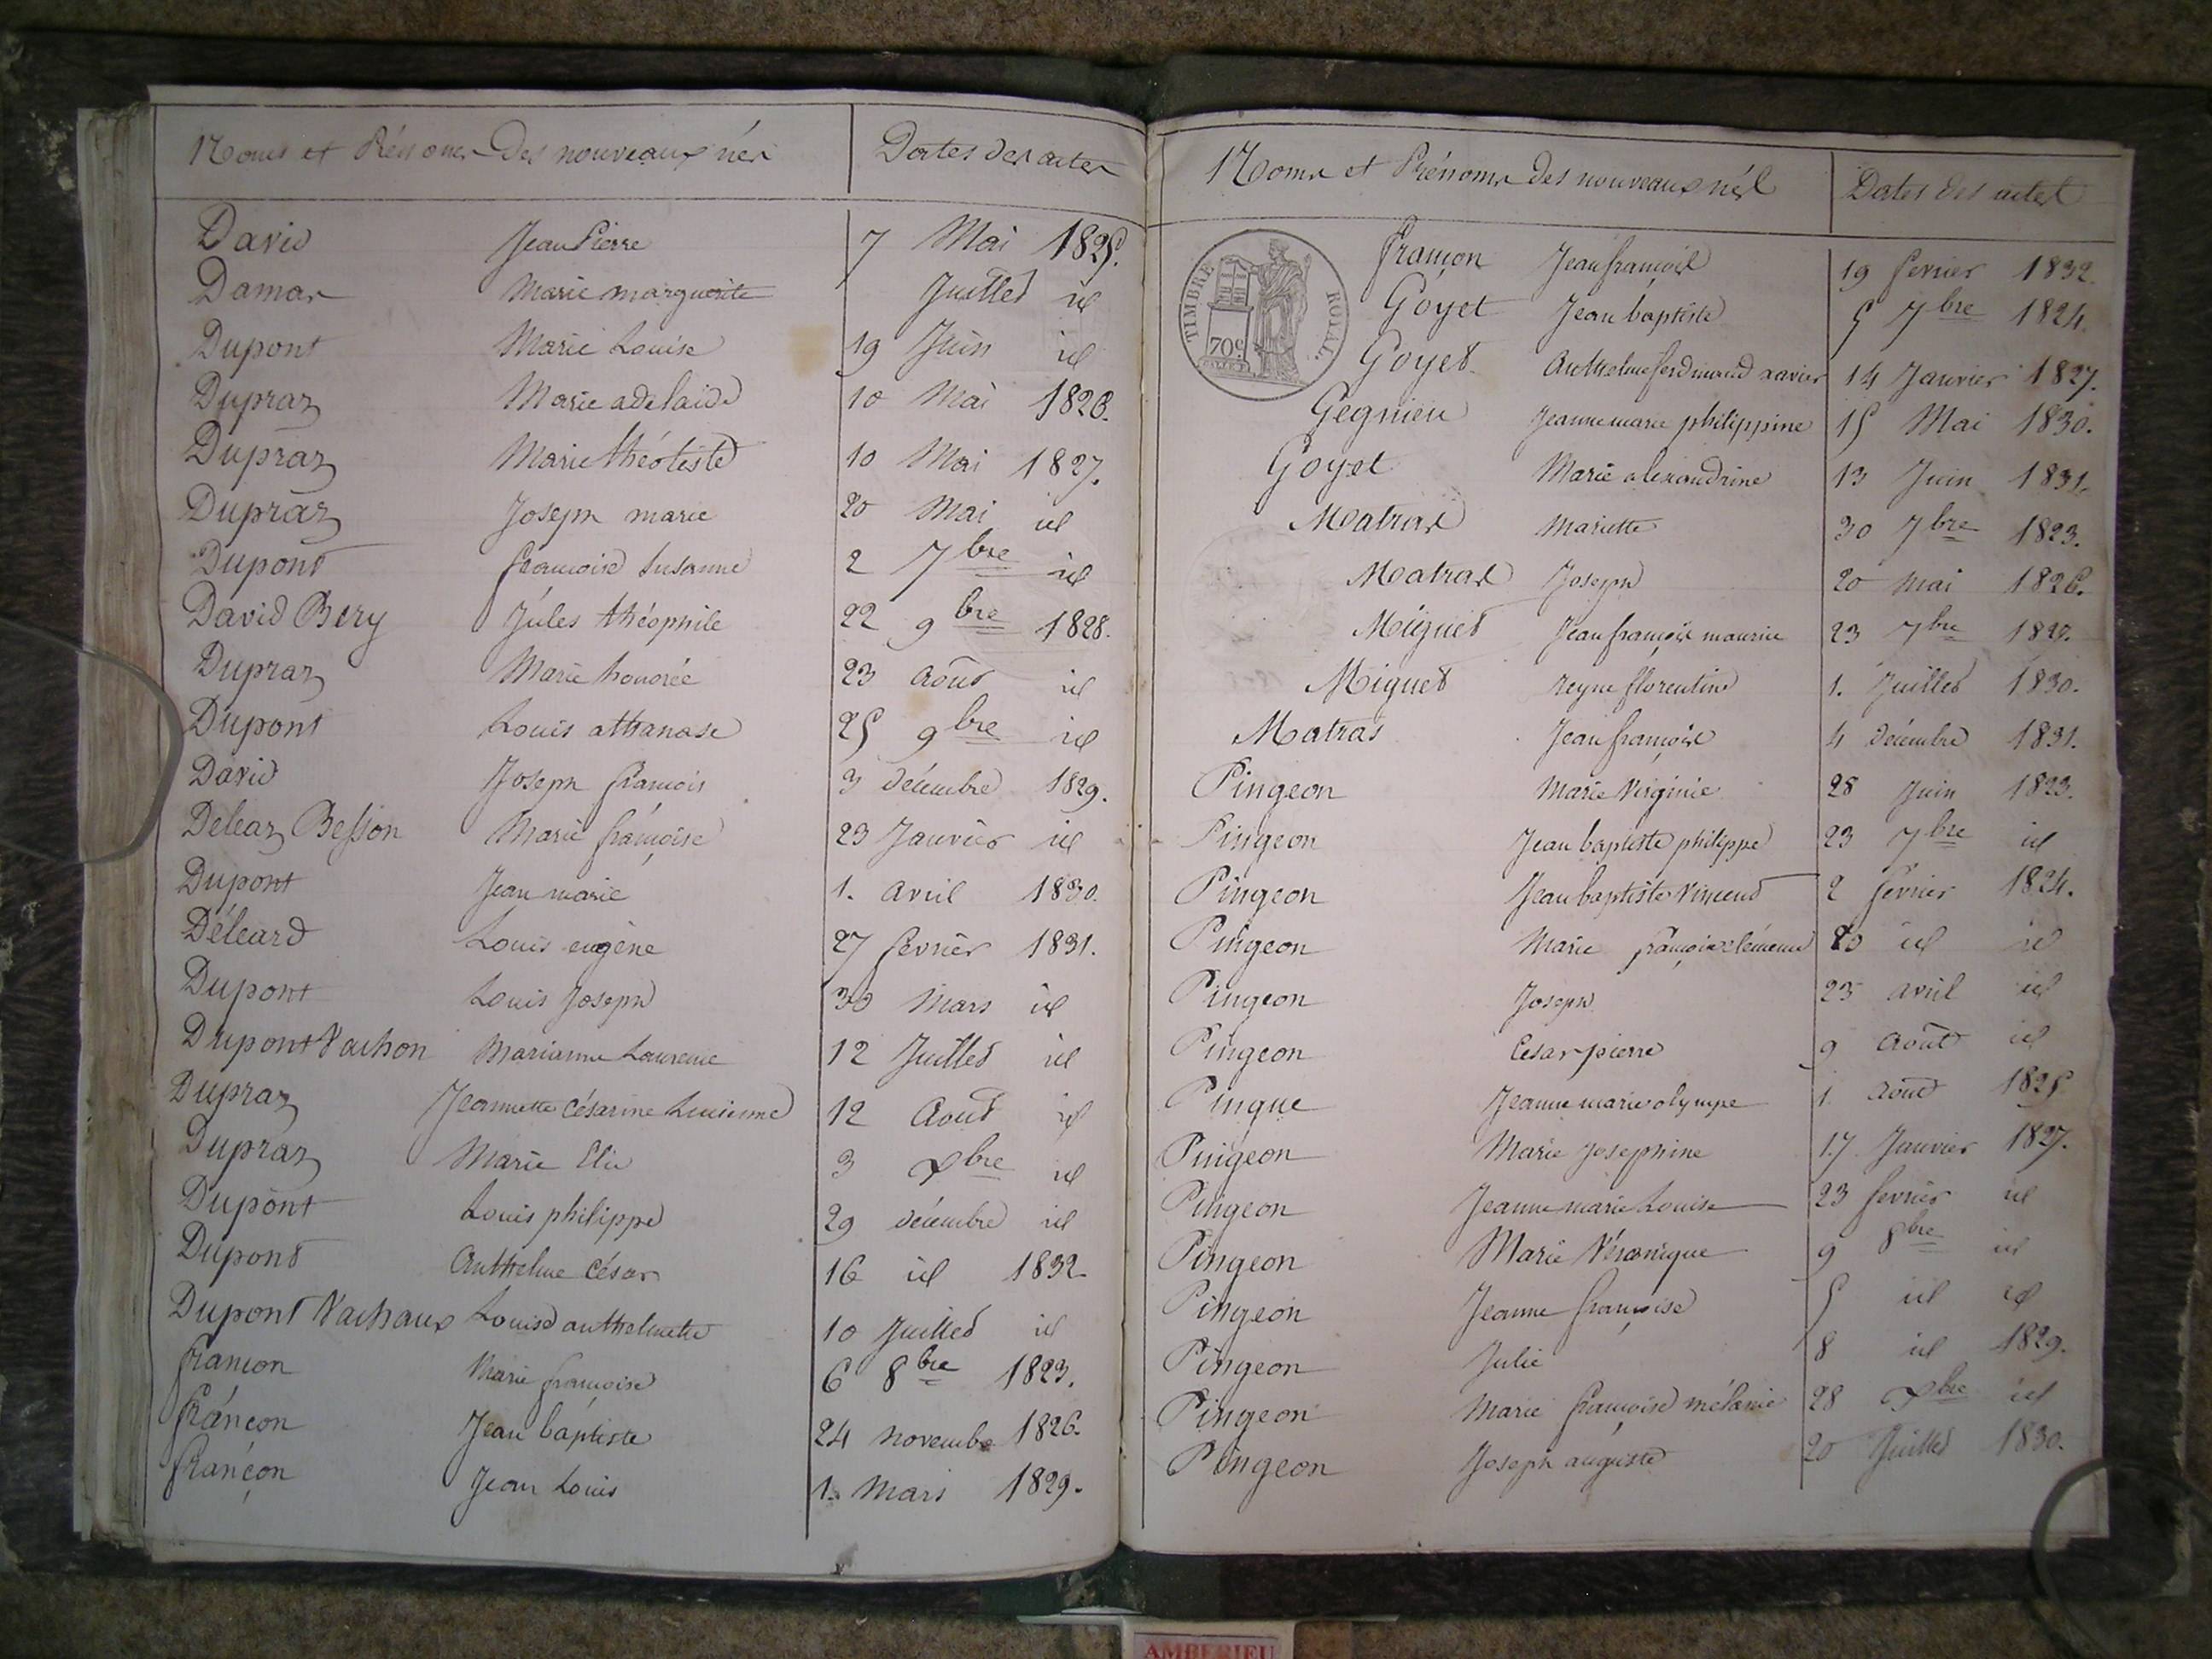 Noms et Prénoms Des nouveaux nés Dates des actes
David Jean Pierre 7 Mai 1825.
Damas Marie marguerite Juillet id
Dupont Marie Louise 19 Juin id
Dupraz Marie adelaide 10 Mai 1826.
Dupraz Marie théotiste 10 Mai 1827.
Dupraz Joseph marie 20 Mai id
Dupont françoise Susanne 2 7bre id
David Bery Jules théophile 22 9bre 1828.
Dupraz Marie honorée 23 Août id
Dupont Louis athanase 25 9bre id
David Joseph françois 3 Décembre 1829.
Deleaz Besson Marie françoise 23 Janvier id
Dupont Jean marie 1. avril 1830.
Déleard Louis eugène 27 fevrier 1831.
Dupont Louis Joseph 30 Mars id
Dupont Vachon Marianne Laurence 12 Juillet id
Dupraz Jeannette Césarine Lucienne 12 Aout id
Dupraz Marie Elie 3 Xbre id
Dupont Louis philippe 29 Décembre id
Dupont Anthelme César 16 id 1832
Dupont Vachaux Louise anthelmette 10 Juillet id
françon Marie françoise 6 8bre 1823.
françon Jean baptiste 24 novembre 1826.
françon Jean Louis 1. Mars 1829.
Noms et Prénoms des nouveaux nés Dates des actes
TIMBRE ROYAL.
70c
françon Jean françois 19 fevrier 1832.
Goyet Jean baptiste 5 7bre 1824.
Goyet Anthelme ferdinand xavier 14 Janvier 1827.
Gegnieu Jeanne marie philippine 15 Mai 1830.
Goyet Marie alexandrine 13 Juin 1831.
Matras Mariette 30 7bre 1823.
Matras Joseph 20 mai 1826.
Miguet Jean françois maurice 23 7bre
Miguet reyne florentine 1. Juillet 1830.
Matras Jean françois 4 décembre 1831.
Pingeon Marie Virginie 28 Juin 1823.
Pingeon Jean baptiste philippe 23 7bre id
Pingeon Jean baptiste Vincent 2 fevrier 1824.
Pingeon Marie françoise clémence id id
Pingeon Joseph 25 avril id
Pingeon Cesar pierre 9 Août id
Pingue Jeanne marie olympe 1. Août 1825
Pingeon Marie Josephine 17 Janvier 1827.
Pingeon Jeanne marie Louise 23 fevrier id
Pingeon Marie Véronique 9 8bre id
Pingeon Jeanne françoise 5 id id
Pingeon Julie 8 id 1829.
Pingeon Marie françoise mélanie 28 Xbre id
Pingeon Joseph auguste 20 Juillet 1830.
AMBERIEU